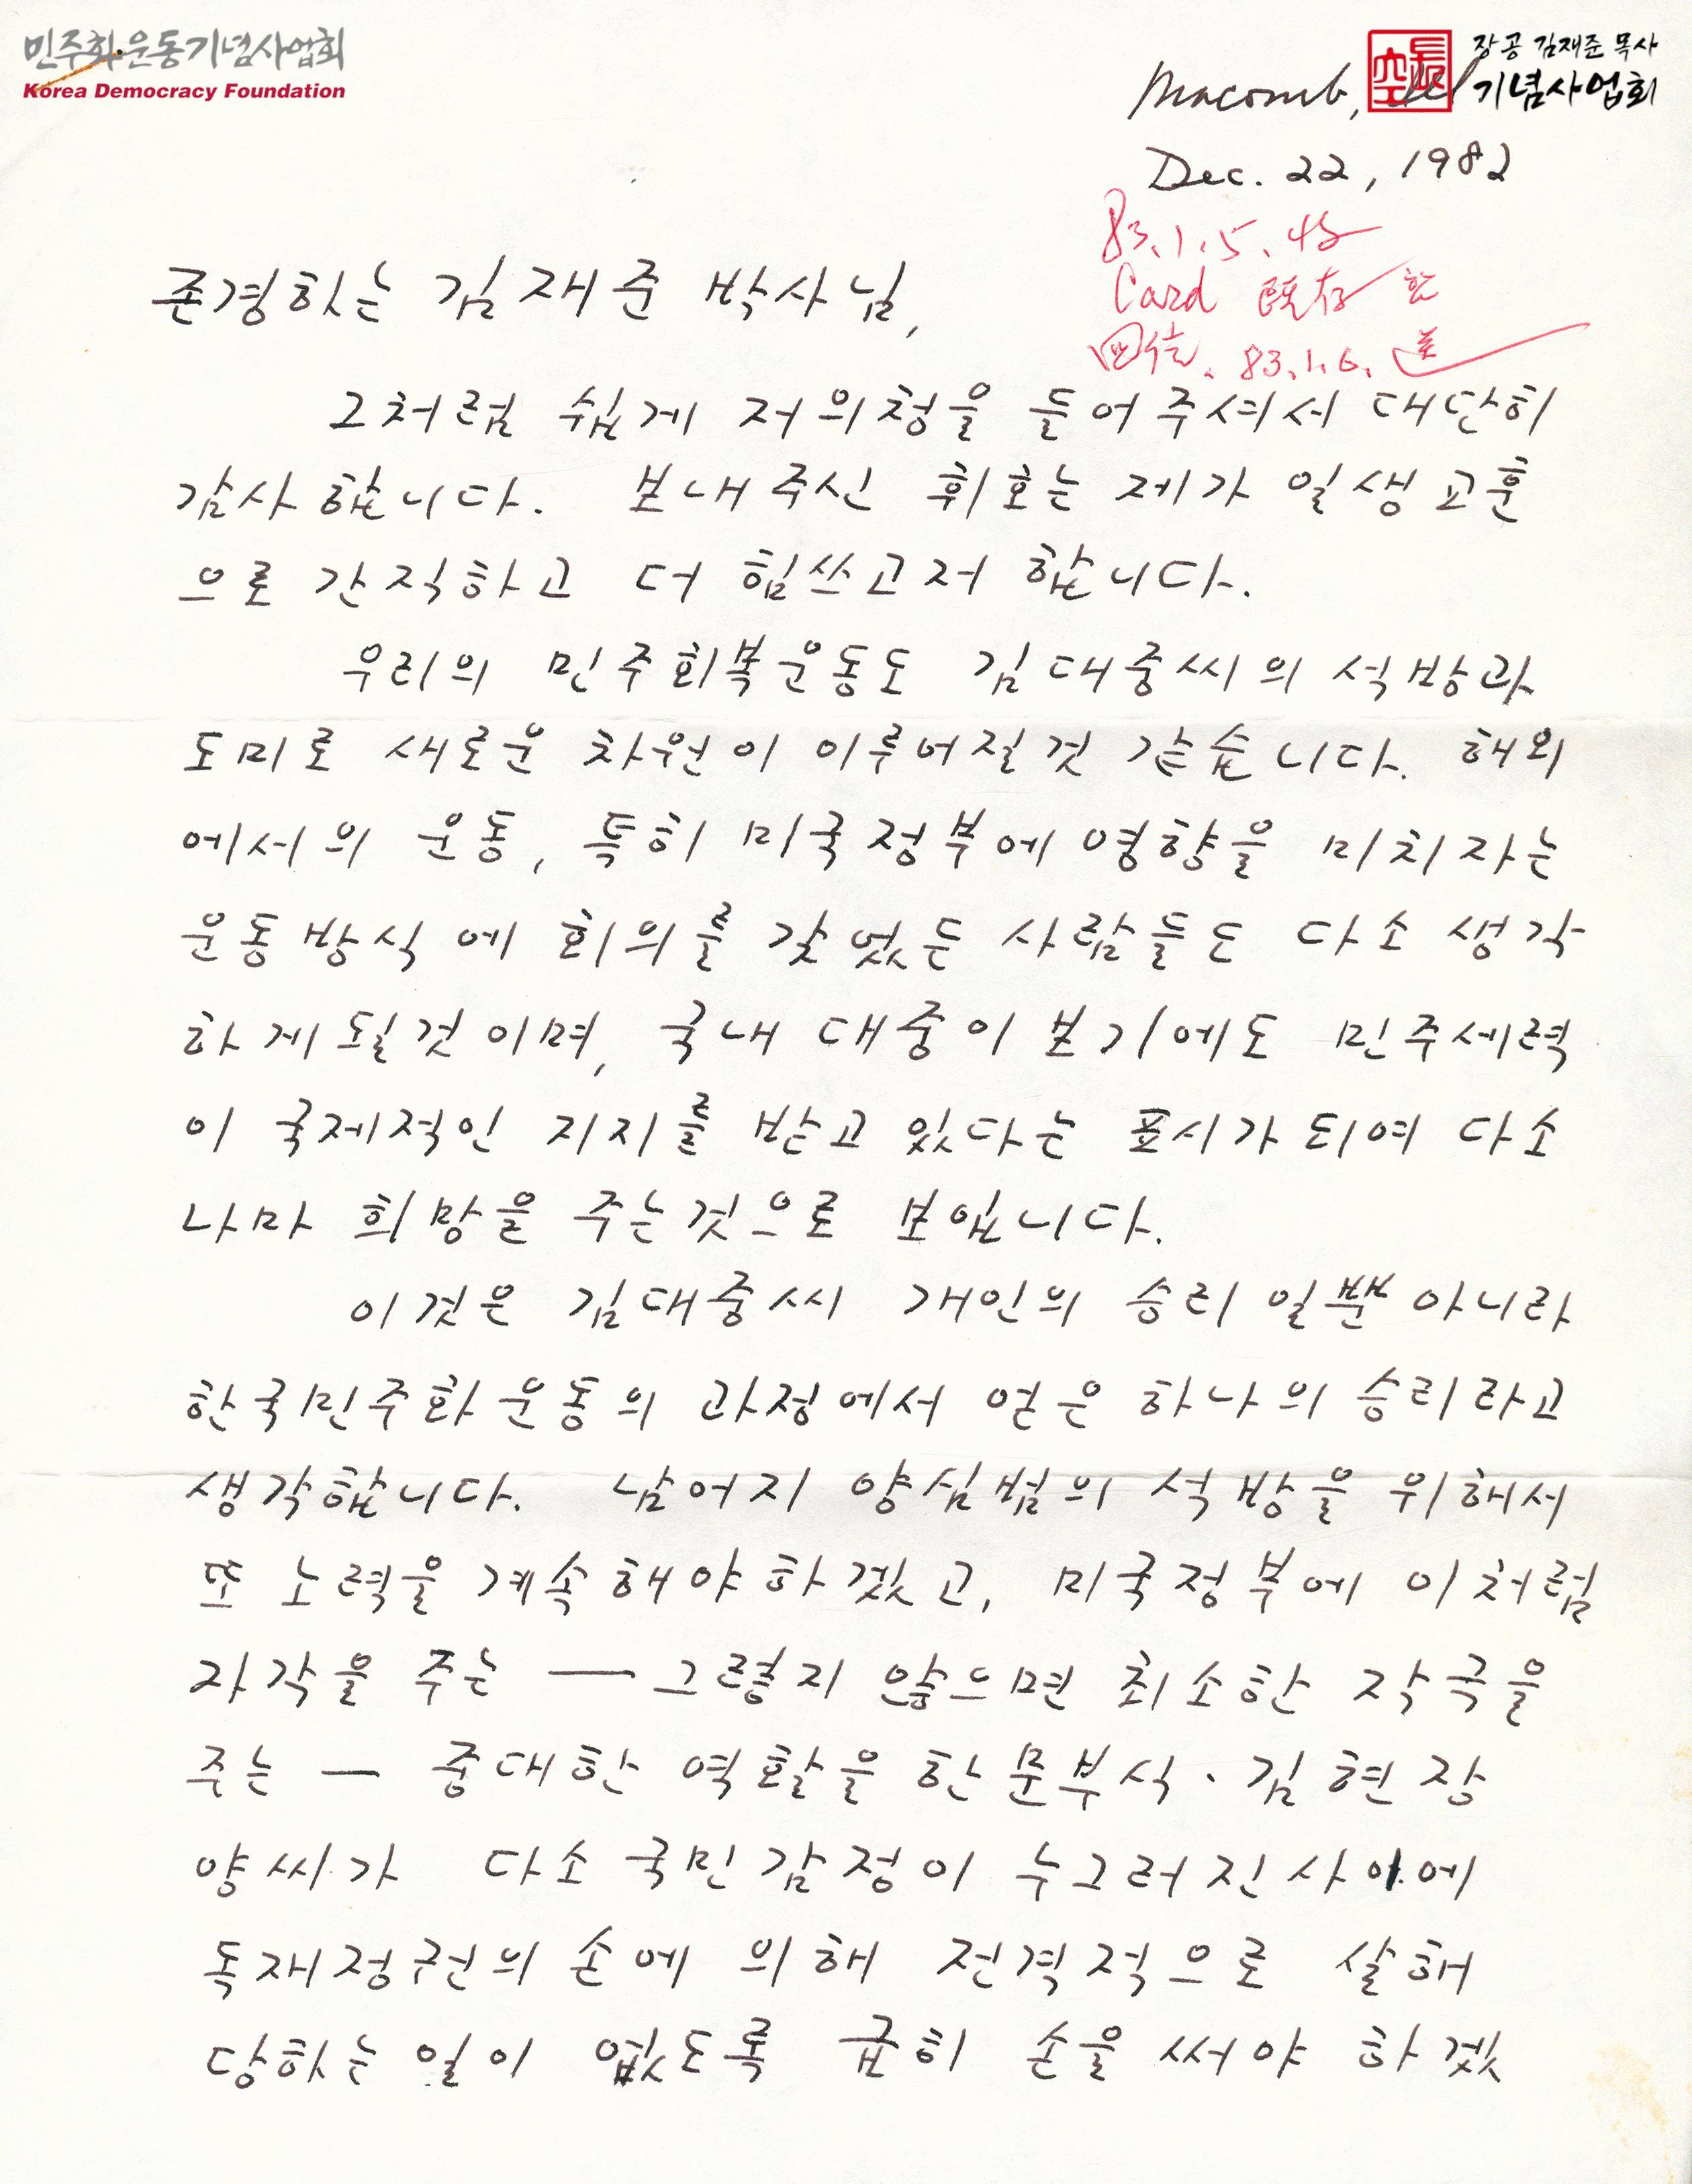 민주화운동기념사업회
Korea Democracy Foundation
장공 김재준 목사
기념사업회
Macomb, Ill
Dec. 22, 1982
83. 1. 5.
Card
83. 1. 6.
존경하는 김재준 박사님,
그처럼 쉽게 저의청을 들어주셔서 대단히
감사합니다. 보내주신 휘호는 제가 일생교훈
으로 간직하고 더 힘쓰고저 합니다.
우리의 민주회복운동도 김대중씨의 석방과
도미로 새로운 차원이 이루어질것 같습니다. 해외
에서의 운동, 특히 미국정부에 영향을 미치자는
운동방식에 회의를 갖었든 사람들도 다소 생각
하게될것이며, 국내 대중이 보기에도 민주세력
이 국제적인 지지를 받고 있다는 표시가 되여 다소
나마 희망을 주는것으로 보입니다.
이것은 김대중씨 개인의 승리일뿐 아니라
한국민주화운동의 과정에서 얻은 하나의 승리라고
생각합니다. 남어지 양심범의 석방을 위해서
또 노력을 계속해야하겠고, 미국정부에 이처럼
자각을 주는 — 그렇지 않으면 최소한 자극을
주는 — 중대한 역할을 한 문부식·김현장
양씨가 다소 국민감정이 누그러진사이에
독재정권의 손에 의해 전격적으로 살해
당하는일이 없도록 급히 손을 써야 하겠